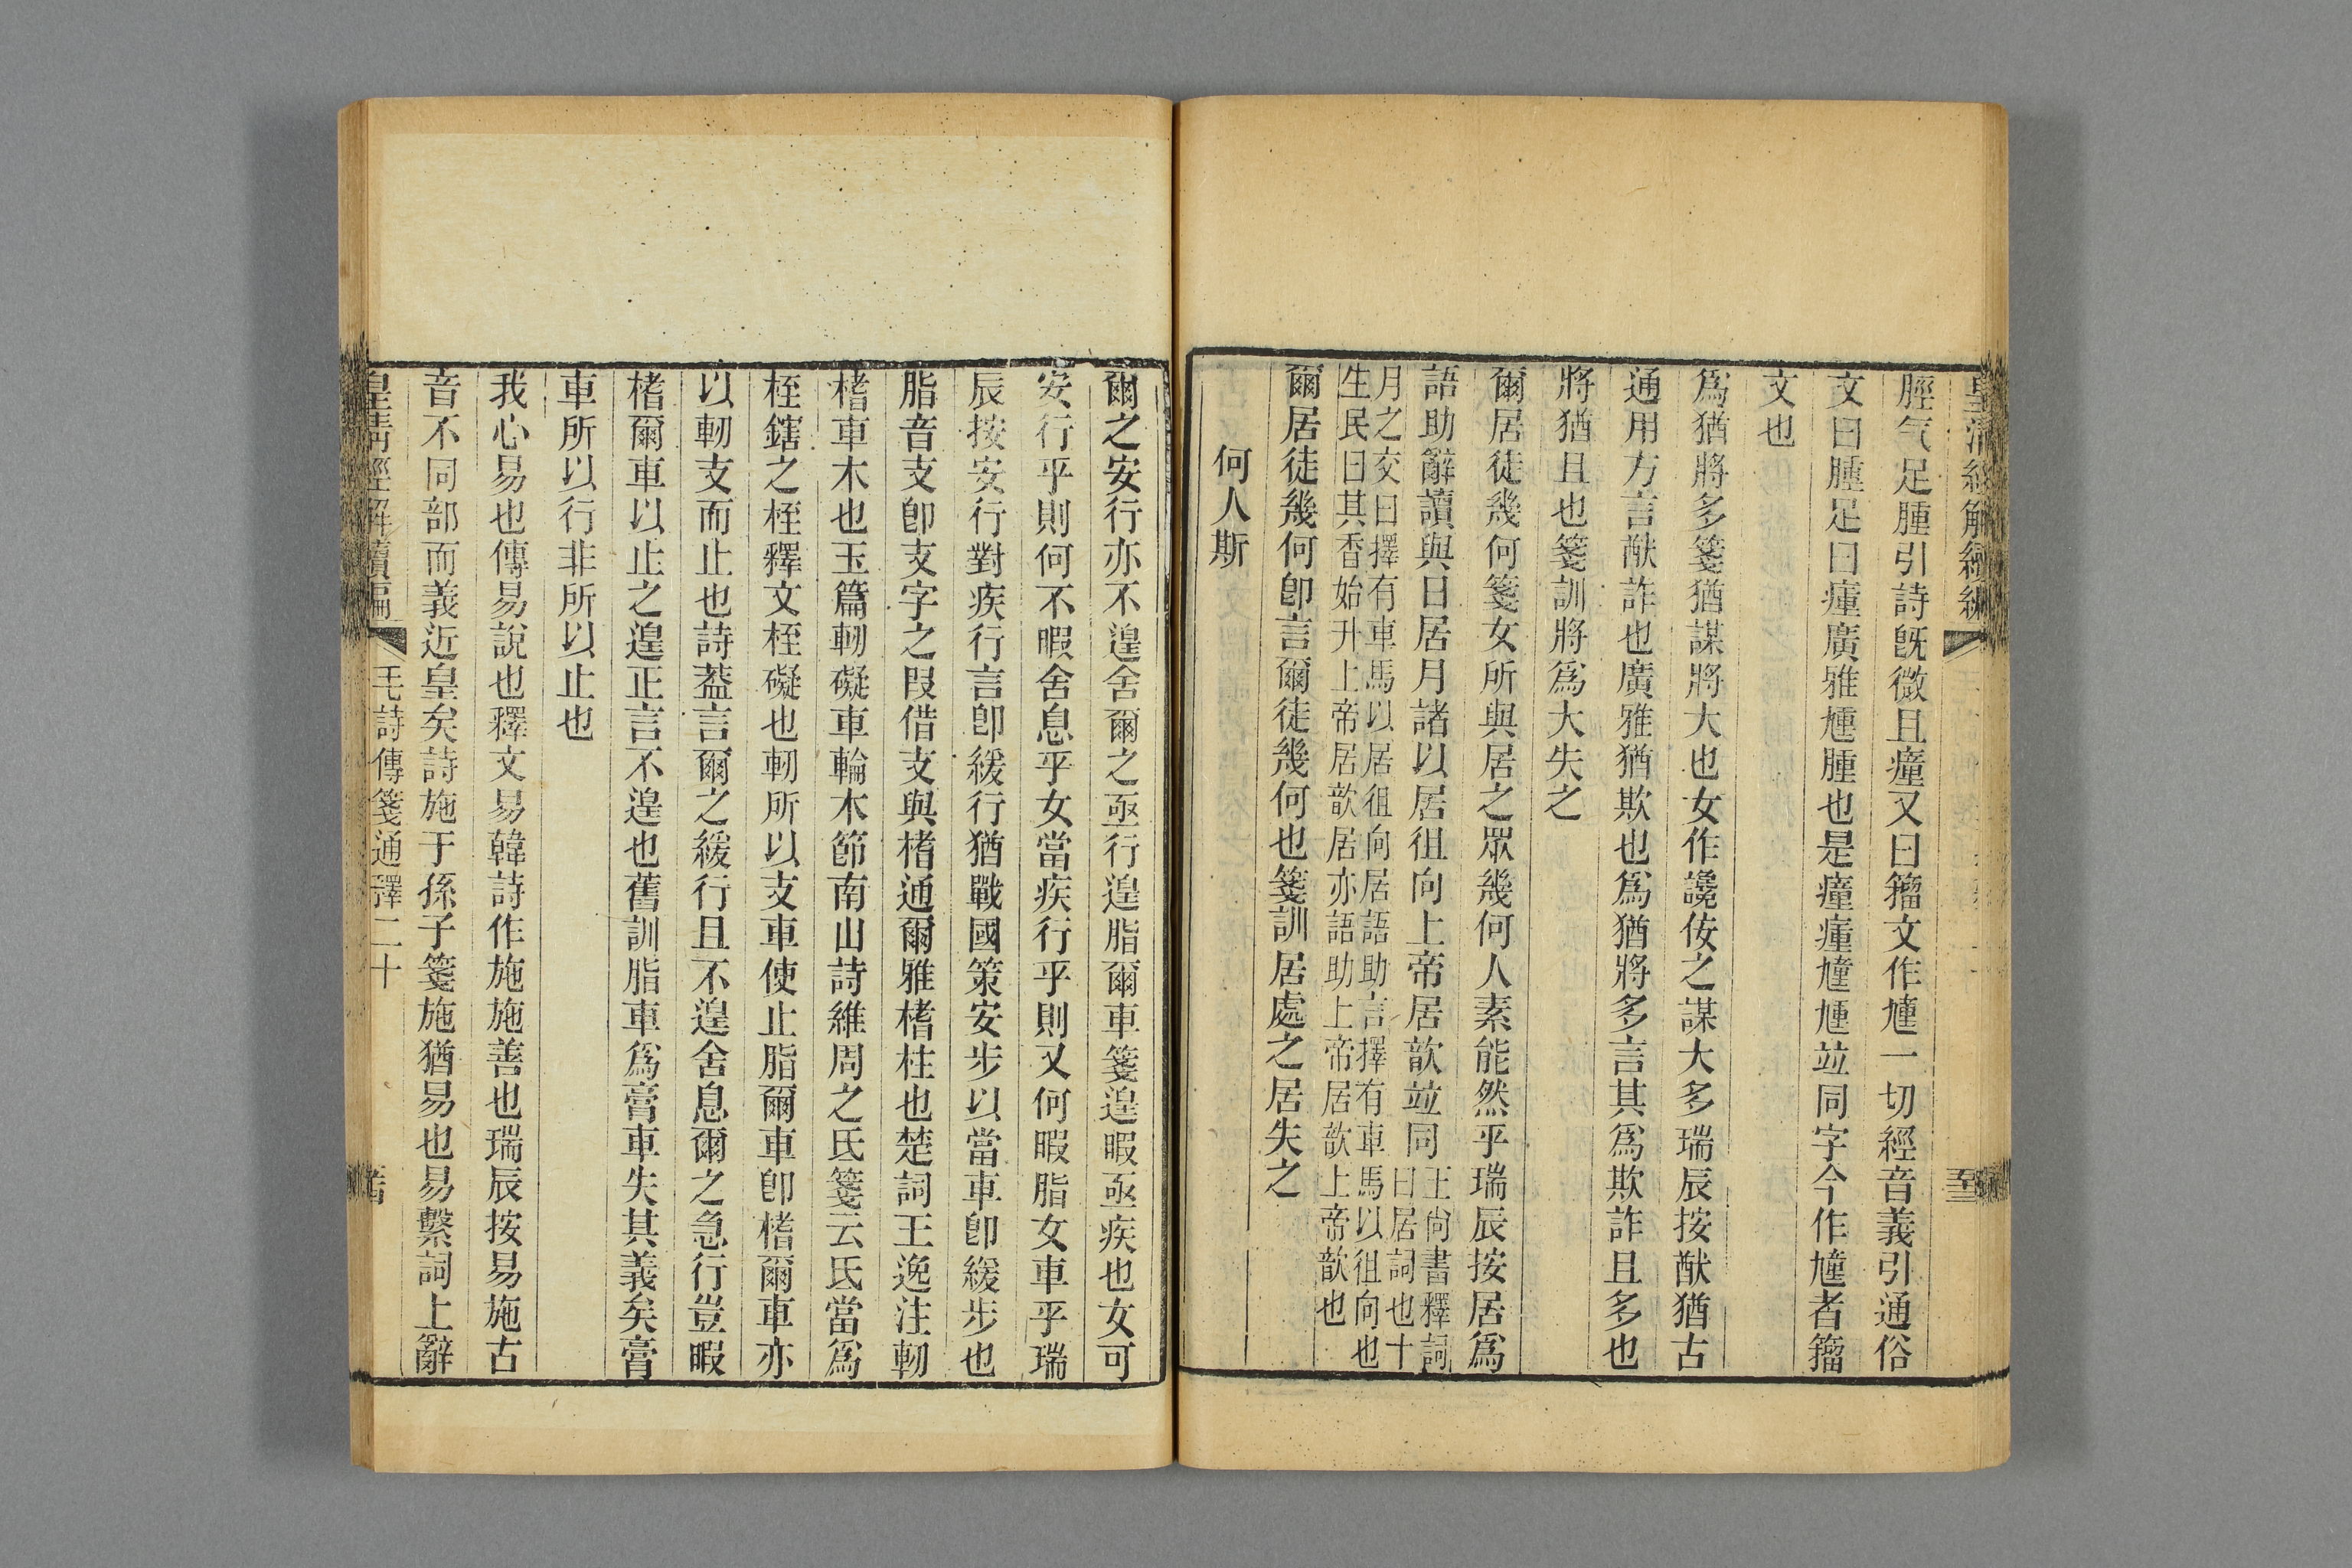 皇清經解續編
脛气足腫引詩旣微且㾿又曰籀文作𡰁一切經音義引通俗
文曰腫足曰㾿廣雅𡰁腫也是㾿㾿𡰁𡰁竝同字今作𡰁者籀
文也
爲猶將多箋猶謀將大也女作讒佞之謀大多瑞辰按猷猶古
通用方言猷詐也廣雅猶欺也爲猶將多言其爲欺詐且多也
將猶且也箋訓將爲大失之
爾居徒幾何箋女所與居之眾幾何人素能然乎瑞辰按居爲
語助辭讀與日居月諸以居徂向上帝居歆竝同王尙書釋詞曰居詞也十
月之交曰擇有車馬以居徂向居語助言擇有車馬以徂向也
生民曰其香始升上帝居歆居亦語助上帝居歆上帝歆也
爾居徒幾何卽言爾徒幾何也箋訓居處之居失之
何人斯
爾之安行亦不遑舍爾之亟行遑脂爾車箋遑暇亟疾也女可
安行乎則何不暇舍息乎女當疾行乎則又何暇脂女車乎瑞
辰按安行對疾行言卽緩行猶戰國策安步以當車卽緩步也
脂音支卽支字之叚借支與榰通爾雅榰柱也楚詞王逸注軔
榰車木也玉篇軔礙車輪木節南山詩維周之氐箋云氐當爲
桎鎋之桎釋文桎礙也軔所以支車使止脂爾車卽榰爾車亦
以軔支而止也詩葢言爾之緩行且不遑舍息爾之急行豈暇
榰爾車以止之遑正言不遑也舊訓脂車爲膏車失其義矣膏
車所以行非所以止也
我心易也傳易說也釋文易韓詩作施施善也瑞辰按易施古
音不同部而義近皇矣詩施于孫子箋施猶易也易繫詞上辭
皇清經解續編
毛詩傳箋通釋二十